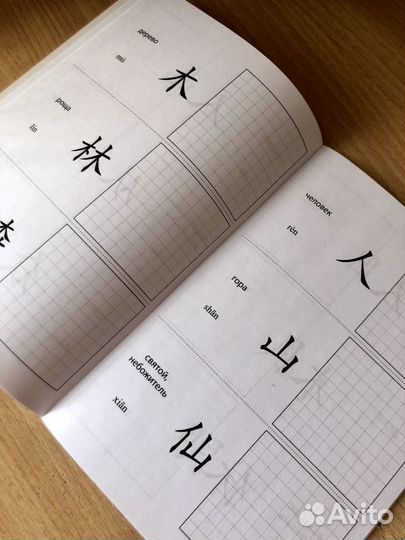 дерево
mù
木
роща
lín
林
человек
rén
人
гора
shān
山
святой,
небожитель
xiān
仙
Avito